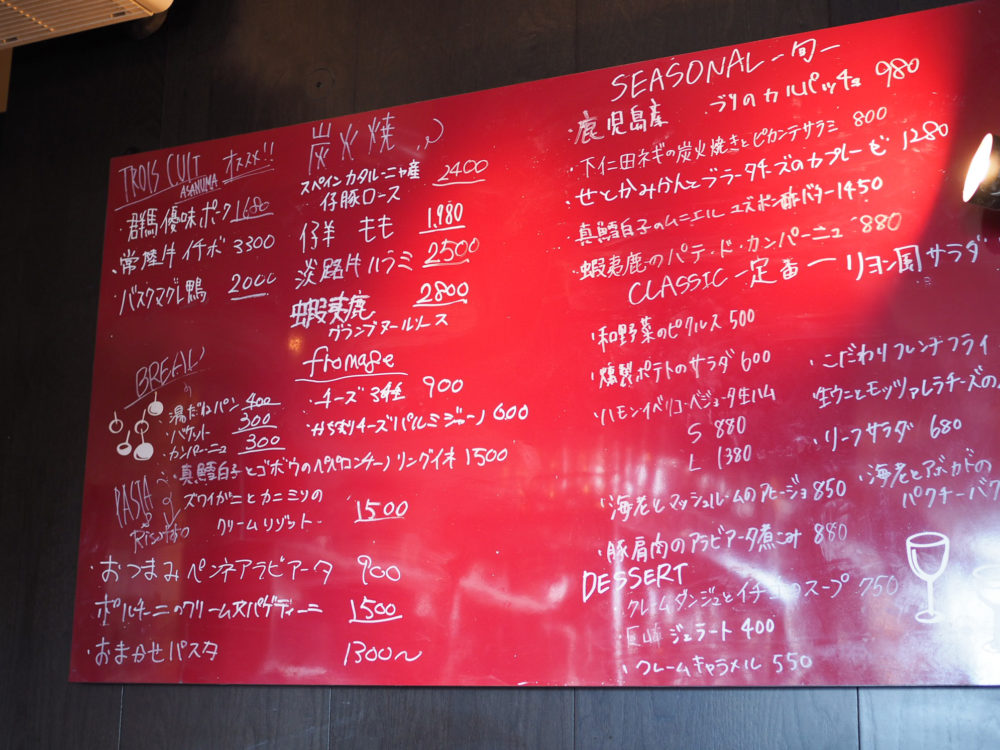 TROIS CUIT
ASANUMA
オススメ!!
・群馬優味ポーク 1680
・常陸牛イチボ 3300
・バスクマグレ鴨 2000
炭火焼
スペインカタルーニャ産
仔豚ロース 2400
仔羊 もも 1,980
淡路牛ハラミ 2500
蝦夷鹿 2800
グランブヌールソース
fromage
・チーズ3種 900
・パルミジャーノ 600
BREAD
・湯だねパン 400
・バケット 300
・カンパーニュ 300
PASTA
Risotto
・真鱈白子とゴボウのペペロンチーノ リングイネ 1500
・ズワイガニとカニミソの
クリームリゾット 1500
・おつまみペンネアラビアータ 900
・ポルチーニのクリームスパゲディーニ 1500
・おまかせパスタ 1300〜
SEASONAL -旬-
・鹿児島産 ブリのカルパッチョ 980
・下仁田ネギの炭火焼きとピカンテサラミ 800
・せとかみかんとブラータチーズのカプレーゼ 1280
・真鱈白子のムニエル ユズポン酢バター 1450
・蝦夷鹿のパテ・ド・カンパーニュ 880
CLASSIC -定番-
・リヨン風サラダ
・和野菜のピクルス 500
・燻製ポテトのサラダ 600
・ハモンイベリコ・ベジョータ生ハム
S 880
L 1380
・海老とマッシュルームのアヒージョ 850
・豚肩肉のアラビアータ煮こみ 880
・こだわりフレンチフライ
生ウニとモッツァレラチーズの
・リーフサラダ 680
・海老とアボカドの
パクチーバク
DESSERT
・クレームダンジュとイチゴのスープ 750
・巨峰ジェラート 400
・クレームキャラメル 550